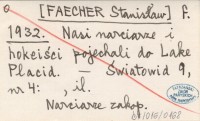 0 [FAECHER Stanisław] f.
1932. Nasi narciarze i
hokeiści pojechali do Lake
Placid. — Światowid 9,
nr 4: , il.
Narciarze zakop.